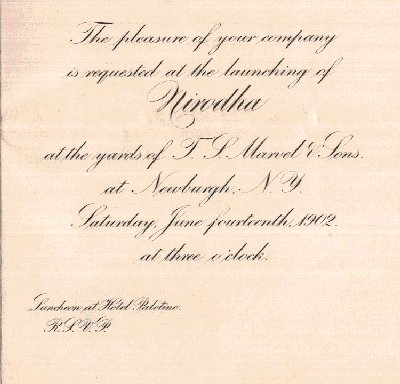 The pleasure of your company
is requested at the launching of
Nirodha
at the yards of T. S. Marvel & Sons.
at Newburgh, N.Y.
Saturday, June fourteenth, 1902.
at three o'clock.
Luncheon at Hotel Palatine.
R.S.V.P.